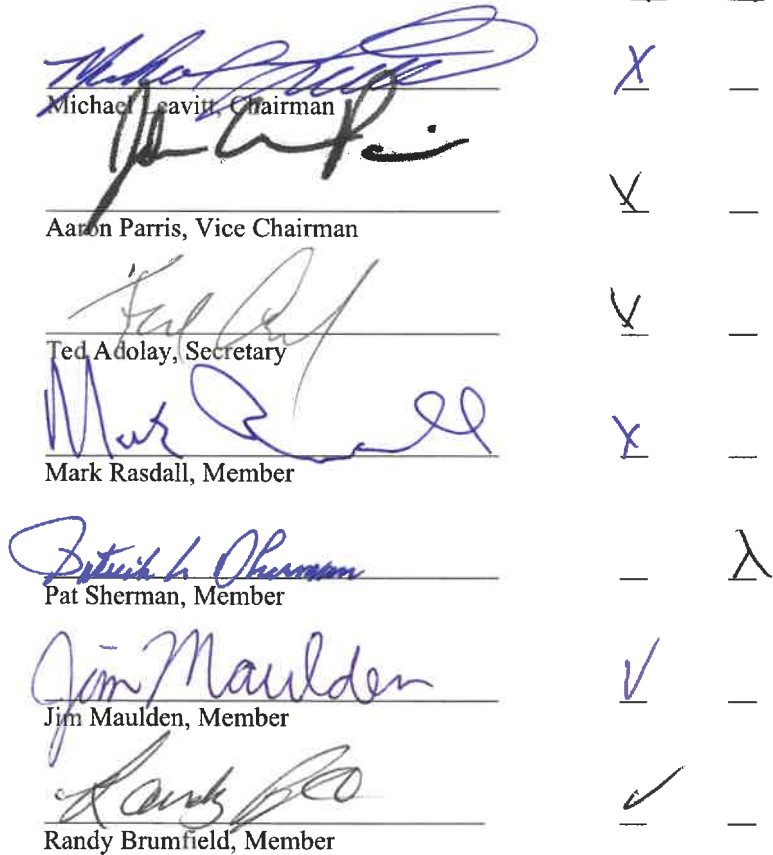 Michael Leavitt, Chairman X
Aaron Parris, Vice Chairman X
Ted Adolay, Secretary
Mark Rasdall, Member X
Patrick L Sherman
Pat Sherman, Member
Jim Maulden
Jim Maulden, Member ✓
Randy
Randy Brumfield, Member ✓